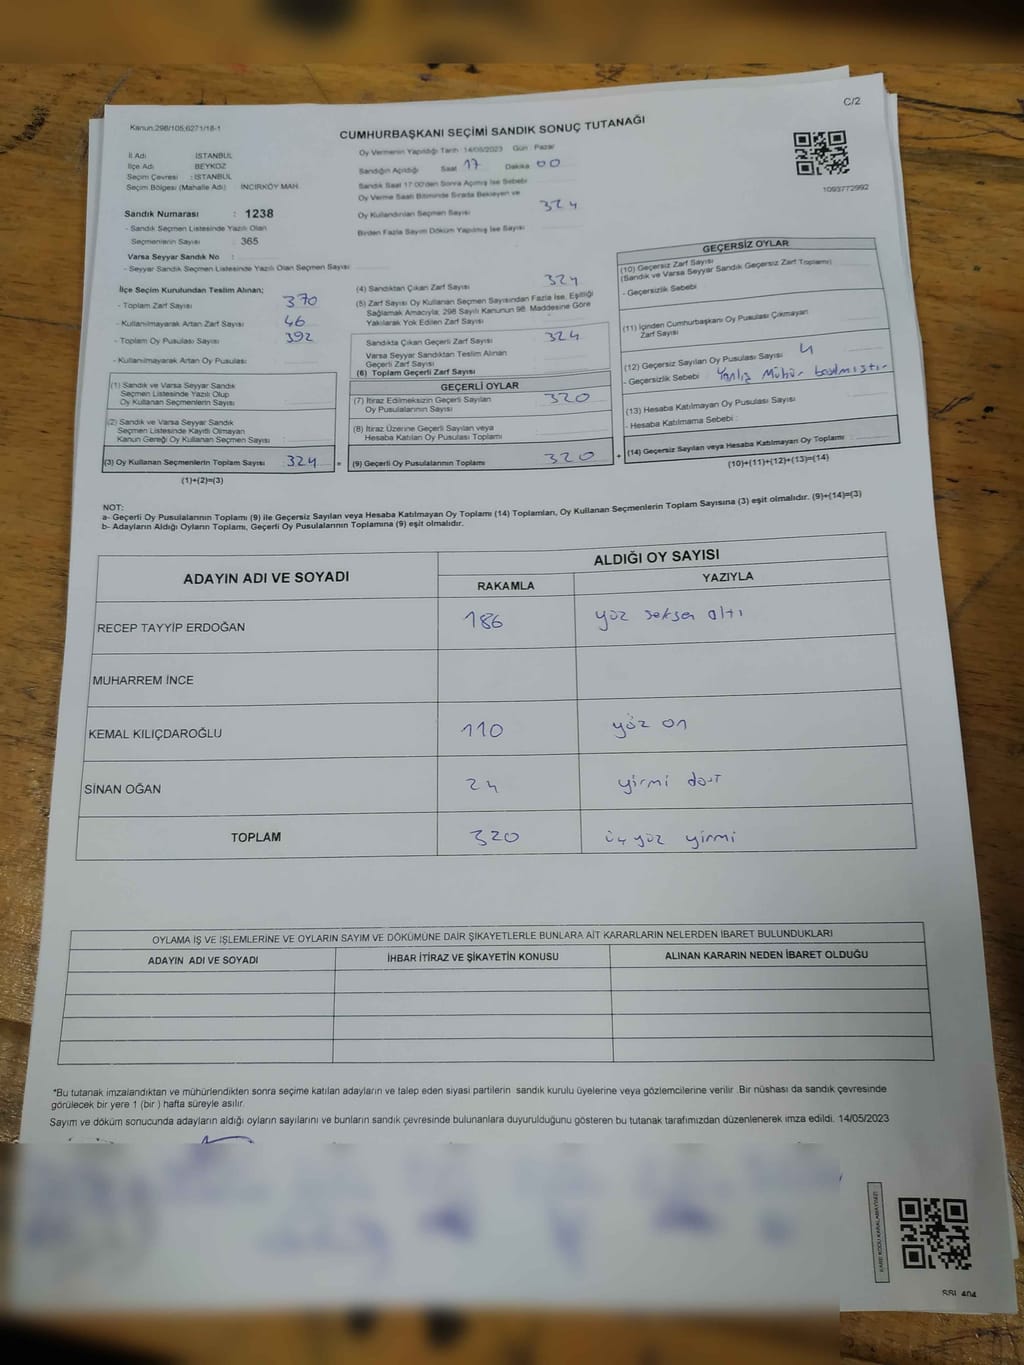 C/2
Kanun,298/105,6271/18-1
CUMHURBAŞKANI SEÇİMİ SANDIK SONUÇ TUTANAĞI
İl Adı : İSTANBUL
İlçe Adı : BEYKOZ
Seçim Çevresi : İSTANBUL
Seçim Bölgesi (Mahalle Adı) İNCİRKÖY MAH.
Sandık Numarası : 1238
- Sandık Seçmen Listesinde Yazılı Olan
Seçmenlerin Sayısı : 365
Varsa Seyyar Sandık No :
- Seyyar Sandık Seçmen Listesinde Yazılı Olan Seçmen Sayısı
Oy Vermenin Yapıldığı Tarih : 14/05/2023 Gün : Pazar
Sandığın Açıldığı Saat 17 Dakika 00
Sandık Saat 17:00'den Sonra Açılmış İse Sebebi
Oy Verme Saati Bitiminde Sırada Bekleyen ve
Oy Kullandırılan Seçmen Sayısı 324
Birden Fazla Sayım Döküm Yapılmış İse Sayısı
1093772992
İlçe Seçim Kurulundan Teslim Alınan;
- Toplam Zarf Sayısı 370
- Kullanılmayarak Artan Zarf Sayısı 46
- Toplam Oy Pusulası Sayısı 392
- Kullanılmayarak Artan Oy Pusulası
(1) Sandık ve Varsa Seyyar Sandık
Seçmen Listesinde Yazılı Olup
Oy Kullanan Seçmenlerin Sayısı
(2) Sandık ve Varsa Seyyar Sandık
Seçmen Listesinde Kayıtlı Olmayan
Kanun Gereği Oy Kullanan Seçmen Sayısı
(3) Oy Kullanan Seçmenlerin Toplam Sayısı 324 =
(1)+(2)=(3)
(4) Sandıktan Çıkan Zarf Sayısı 324
(5) Zarf Sayısı Oy Kullanan Seçmen Sayısından Fazla İse, Eşitliği
Sağlamak Amacıyla; 298 Sayılı Kanunun 98. Maddesine Göre
Yakılarak Yok Edilen Zarf Sayısı
Sandıkta Çıkan Geçerli Zarf Sayısı 324
Varsa Seyyar Sandıktan Teslim Alınan
Geçerli Zarf Sayısı
(6) Toplam Geçerli Zarf Sayısı
GEÇERLİ OYLAR
(7) İtiraz Edilmeksizin Geçerli Sayılan
Oy Pusulalarının Sayısı 320
(8) İtiraz Üzerine Geçerli Sayılan veya
Hesaba Katılan Oy Pusulası Toplamı
(9) Geçerli Oy Pusulalarının Toplamı 320 +
GEÇERSİZ OYLAR
(10) Geçersiz Zarf Sayısı
(Sandık ve Varsa Seyyar Sandık Geçersiz Zarf Toplamı)
- Geçersizlik Sebebi
(11) İçinden Cumhurbaşkanı Oy Pusulası Çıkmayan
Zarf Sayısı
(12) Geçersiz Sayılan Oy Pusulası Sayısı 4
- Geçersizlik Sebebi : Yanlış Mühür basılmıştır
(13) Hesaba Katılmayan Oy Pusulası Sayısı
- Hesaba Katılmama Sebebi :
(14) Geçersiz Sayılan veya Hesaba Katılmayan Oy Toplamı :
(10)+(11)+(12)+(13)=(14)
NOT:
a- Geçerli Oy Pusulalarının Toplamı (9) ile Geçersiz Sayılan veya Hesaba Katılmayan Oy Toplamı (14) Toplamları, Oy Kullanan Seçmenlerin Toplam Sayısına (3) eşit olmalıdır. (9)+(14)=(3)
b- Adayların Aldığı Oyların Toplamı, Geçerli Oy Pusulalarının Toplamına (9) eşit olmalıdır.
ADAYIN ADI VE SOYADI ALDIĞI OY SAYISI
RAKAMLA YAZIYLA
RECEP TAYYİP ERDOĞAN 186 yüz seksen altı
MUHARREM İNCE
KEMAL KILIÇDAROĞLU 110 yüz on
SİNAN OĞAN 24 yirmi dört
TOPLAM 320 üç yüz yirmi
OYLAMA İŞ VE İŞLEMLERİNE VE OYLARIN SAYIM VE DÖKÜMÜNE DAİR ŞİKAYETLERLE BUNLARA AİT KARARLARIN NELERDEN İBARET BULUNDUKLARI
ADAYIN ADI VE SOYADI İHBAR İTİRAZ VE ŞİKAYETİN KONUSU ALINAN KARARIN NEDEN İBARET OLDUĞU
*Bu tutanak imzalandıktan ve mühürlendikten sonra seçime katılan adayların ve talep eden siyasi partilerin sandık kurulu üyelerine veya gözlemcilerine verilir .Bir nüshası da sandık çevresinde
görülecek bir yere 1 (bir ) hafta süreyle asılır.
Sayım ve döküm sonucunda adayların aldığı oyların sayılarını ve bunların sandık çevresinde bulunanlara duyurulduğunu gösteren bu tutanak tarafımızdan düzenlenerek imza edildi. 14/05/2023